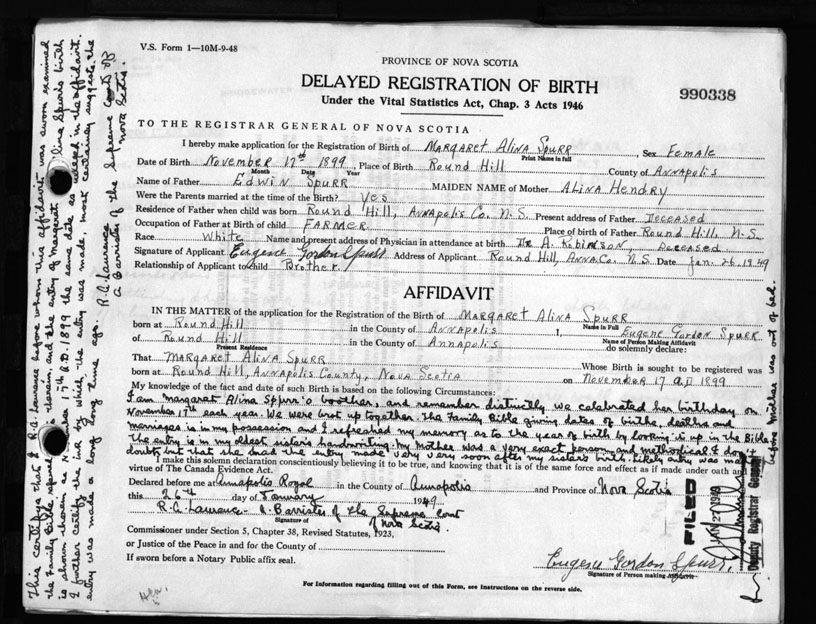 V.S. Form 1—10M-9-48
PROVINCE OF NOVA SCOTIA
DELAYED REGISTRATION OF BIRTH
Under the Vital Statistics Act, Chap. 3 Acts 1946
990338
TO THE REGISTRAR GENERAL OF NOVA SCOTIA
I hereby make application for the Registration of Birth of MARGARET ALINA SPURR, Sex Female
Print Name in full
Date of Birth November 17th 1899, Place of Birth Round Hill County of Annapolis
Month Date Year
Name of Father EDWIN SPURR MAIDEN NAME of Mother ALINA HENDRY
Were the Parents married at the time of the Birth? Yes
Residence of Father when child was born Round Hill, Annapolis Co. N.S. Present address of Father Deceased
Occupation of Father at Birth of child FARMER Place of birth of Father Round Hill, N.S.
Race White Name and present address of Physician in attendance at birth Dr A. Robinson, Deceased
Signature of Applicant Eugene Gordon Spurr Address of Applicant Round Hill, Anna. Co. N.S. Date Jan. 26, 1949
Relationship of Applicant to Child Brother
AFFIDAVIT
IN THE MATTER of the application for the Registration of the Birth of MARGARET ALINA SPURR
Name in Full
born at Round Hill in the County of Annapolis I, Eugene Gordon Spurr
Name of Person Making Affidavit
of Round Hill in the County of Annapolis do solemnly declare:
Present Residence
That MARGARET ALINA SPURR Whose Birth is sought to be registered was
born at Round Hill, Annapolis County, Nova Scotia on November 17 A.D 1899
My knowledge of the fact and date of such Birth is based on the following Circumstances:
I am Margaret Alina Spurr's brother, and remember distinctly we celebrated her birthday on
November 17th each year. We were brot up together. The Family Bible giving dates of births, deaths and
marriages is in my possession and I refreshed my memory as to the year of birth by looking it up in the Bible
The entry is in my oldest sister's handwriting. My mother was a very exact person and methodical. I don't
doubt but that she had the entry made very very soon after my sister's birth, likely entry was made
before Mother was out of bed.
I make this solemn declaration conscientiously believing it to be true, and knowing that it is of the same force and effect as if made under oath and
virtue of The Canada Evidence Act.
Declared before me at Annapolis Royal in the County of Annapolis and Province of Nova Scotia
this 26th day of January 1949
R.C. Laurence - A Barrister of the Supreme Court
of Nova Scotia.
Signature of
Commissioner under Section 5, Chapter 38, Revised Statutes, 1923,
or Justice of the Peace in and for the County of
If sworn before a Notary Public affix seal.
Eugene Gordon Spurr,
Signature of Person making Affidavit
For Information regarding filling out of this Form, see Instructions on the reverse side.
FILED
Deputy Registrar General
This certifys that I R.C. Laurence before whom this affidavit was sworn examined
the Family Bible therein, and the entry of Margaret Alina Spurr's birth
is shown therein as November 17th A.D. 1899 the same date as alleged in the affidavit.
I further certify the ink by which the entry was made, most certainly suggests the
entry was made a long long time ago.
R.C. Laurence
A Barrister of the Supreme Court of
Nova Scotia.